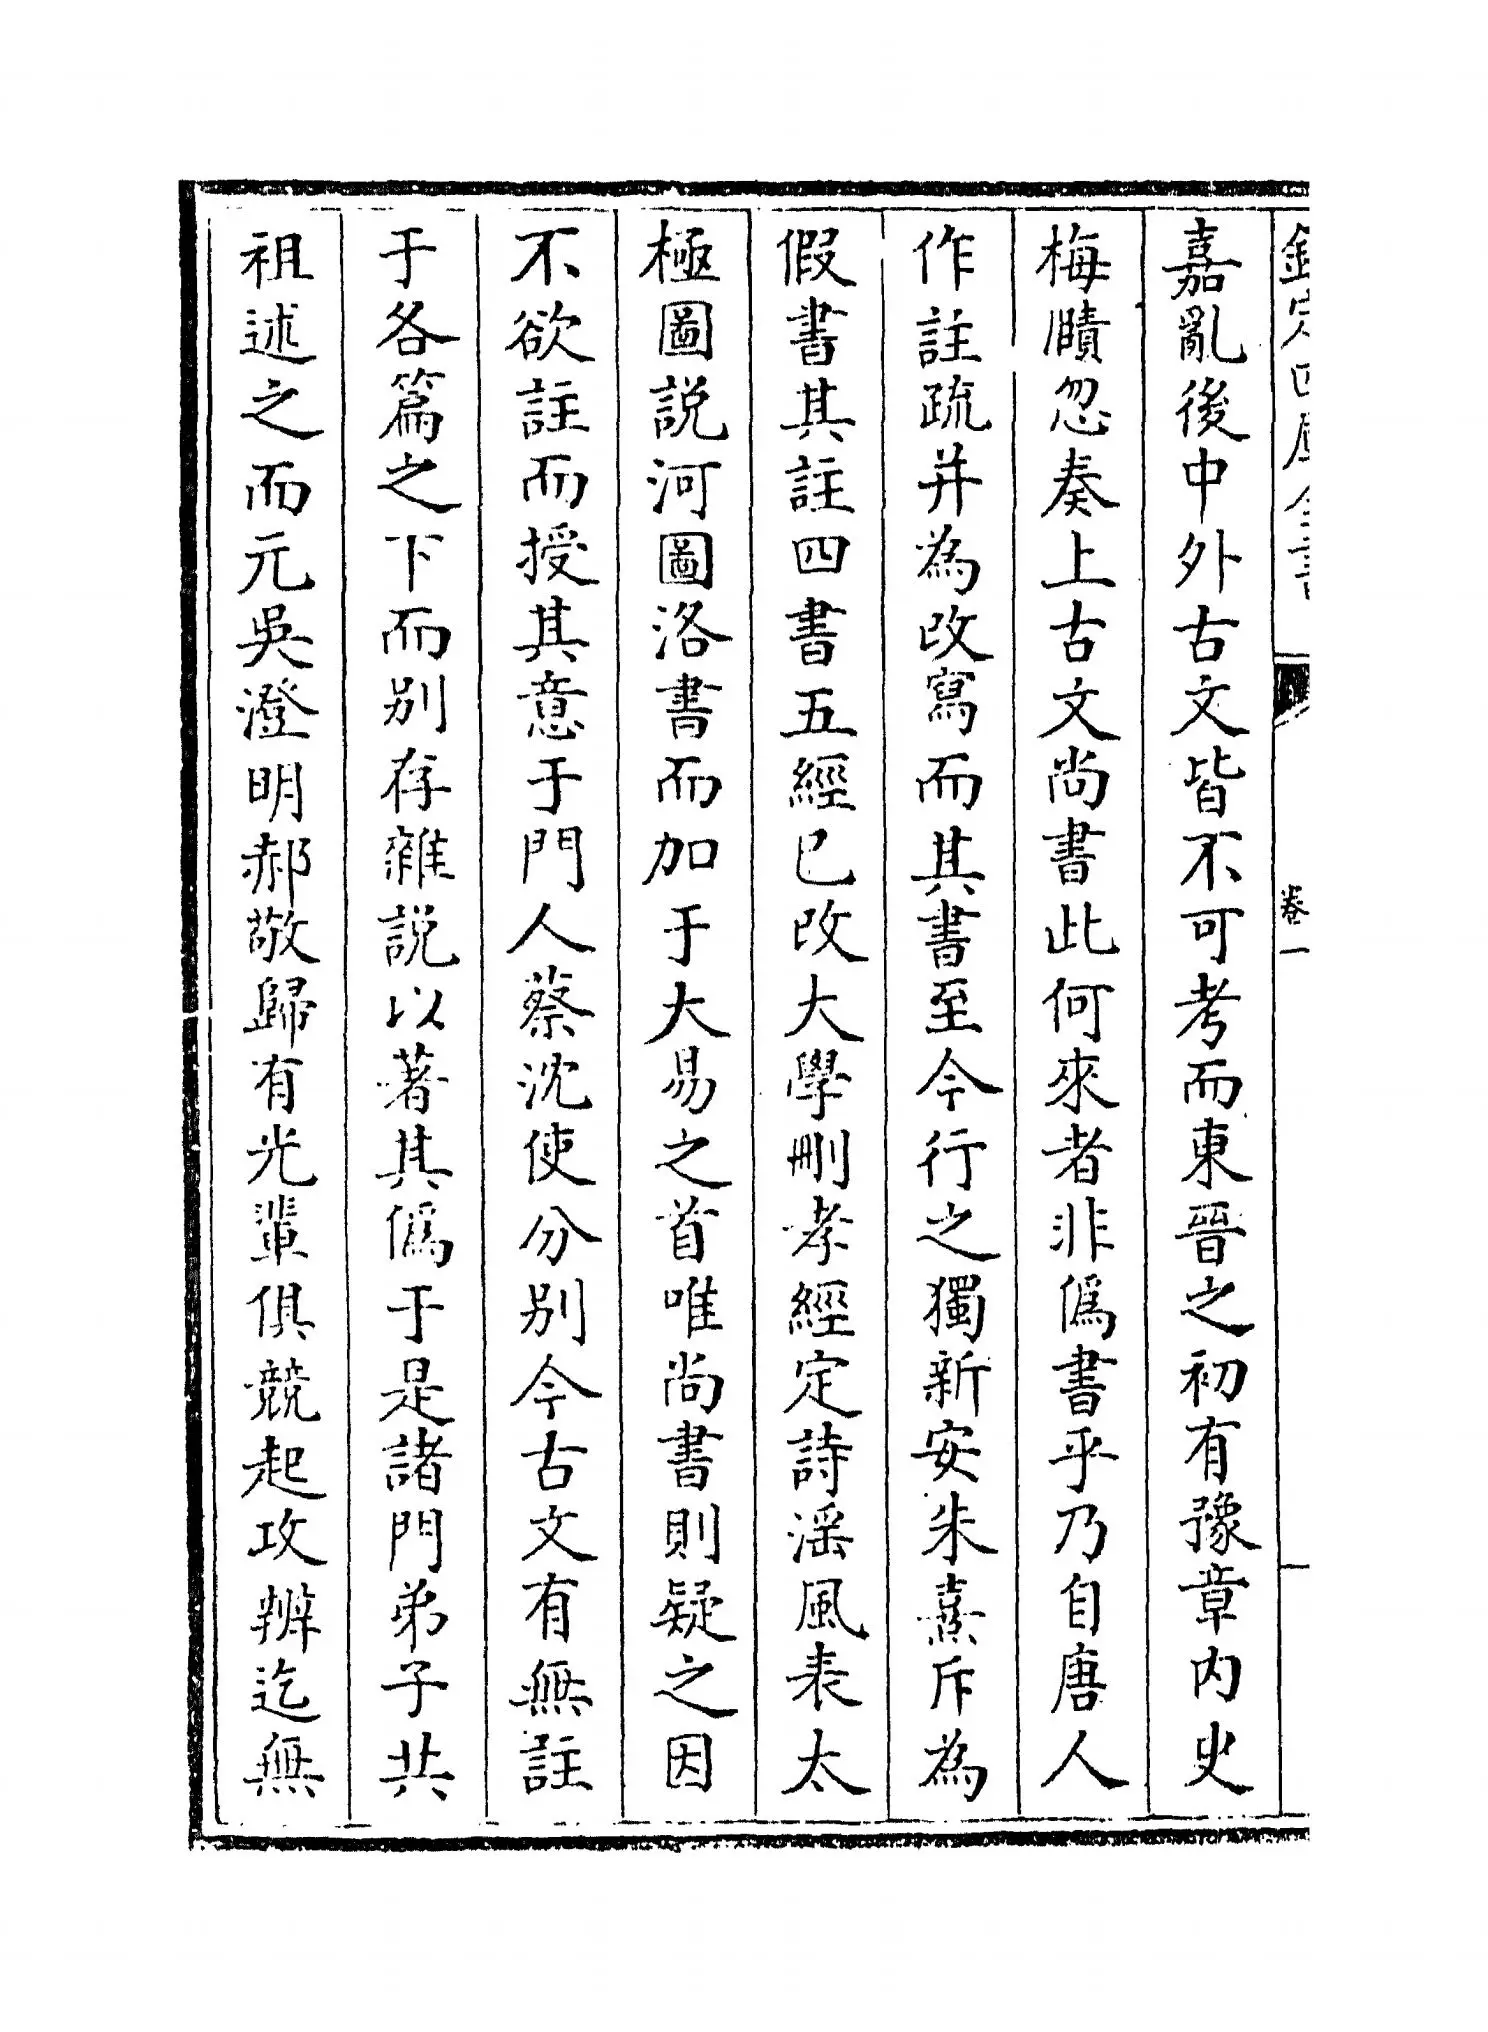 欽定四庫全書
卷一
嘉亂後中外古文皆不可考而東晉之初有豫章内史
梅賾忽奏上古文尚書此何來者非僞書乎乃自唐人
作註疏并為改寫而其書至今行之獨新安朱熹斥為
假書其註四書五經已改大學刪孝經定詩滛風表太
極圖説河圖洛書而加于大易之首唯尚書則疑之因
不欲註而授其意于門人蔡沈使分别今古文有無註
于各篇之下而别存雜説以著其僞于是諸門弟子共
祖述之而元吳澄明郝敬歸有光輩俱競起攻辨迄無